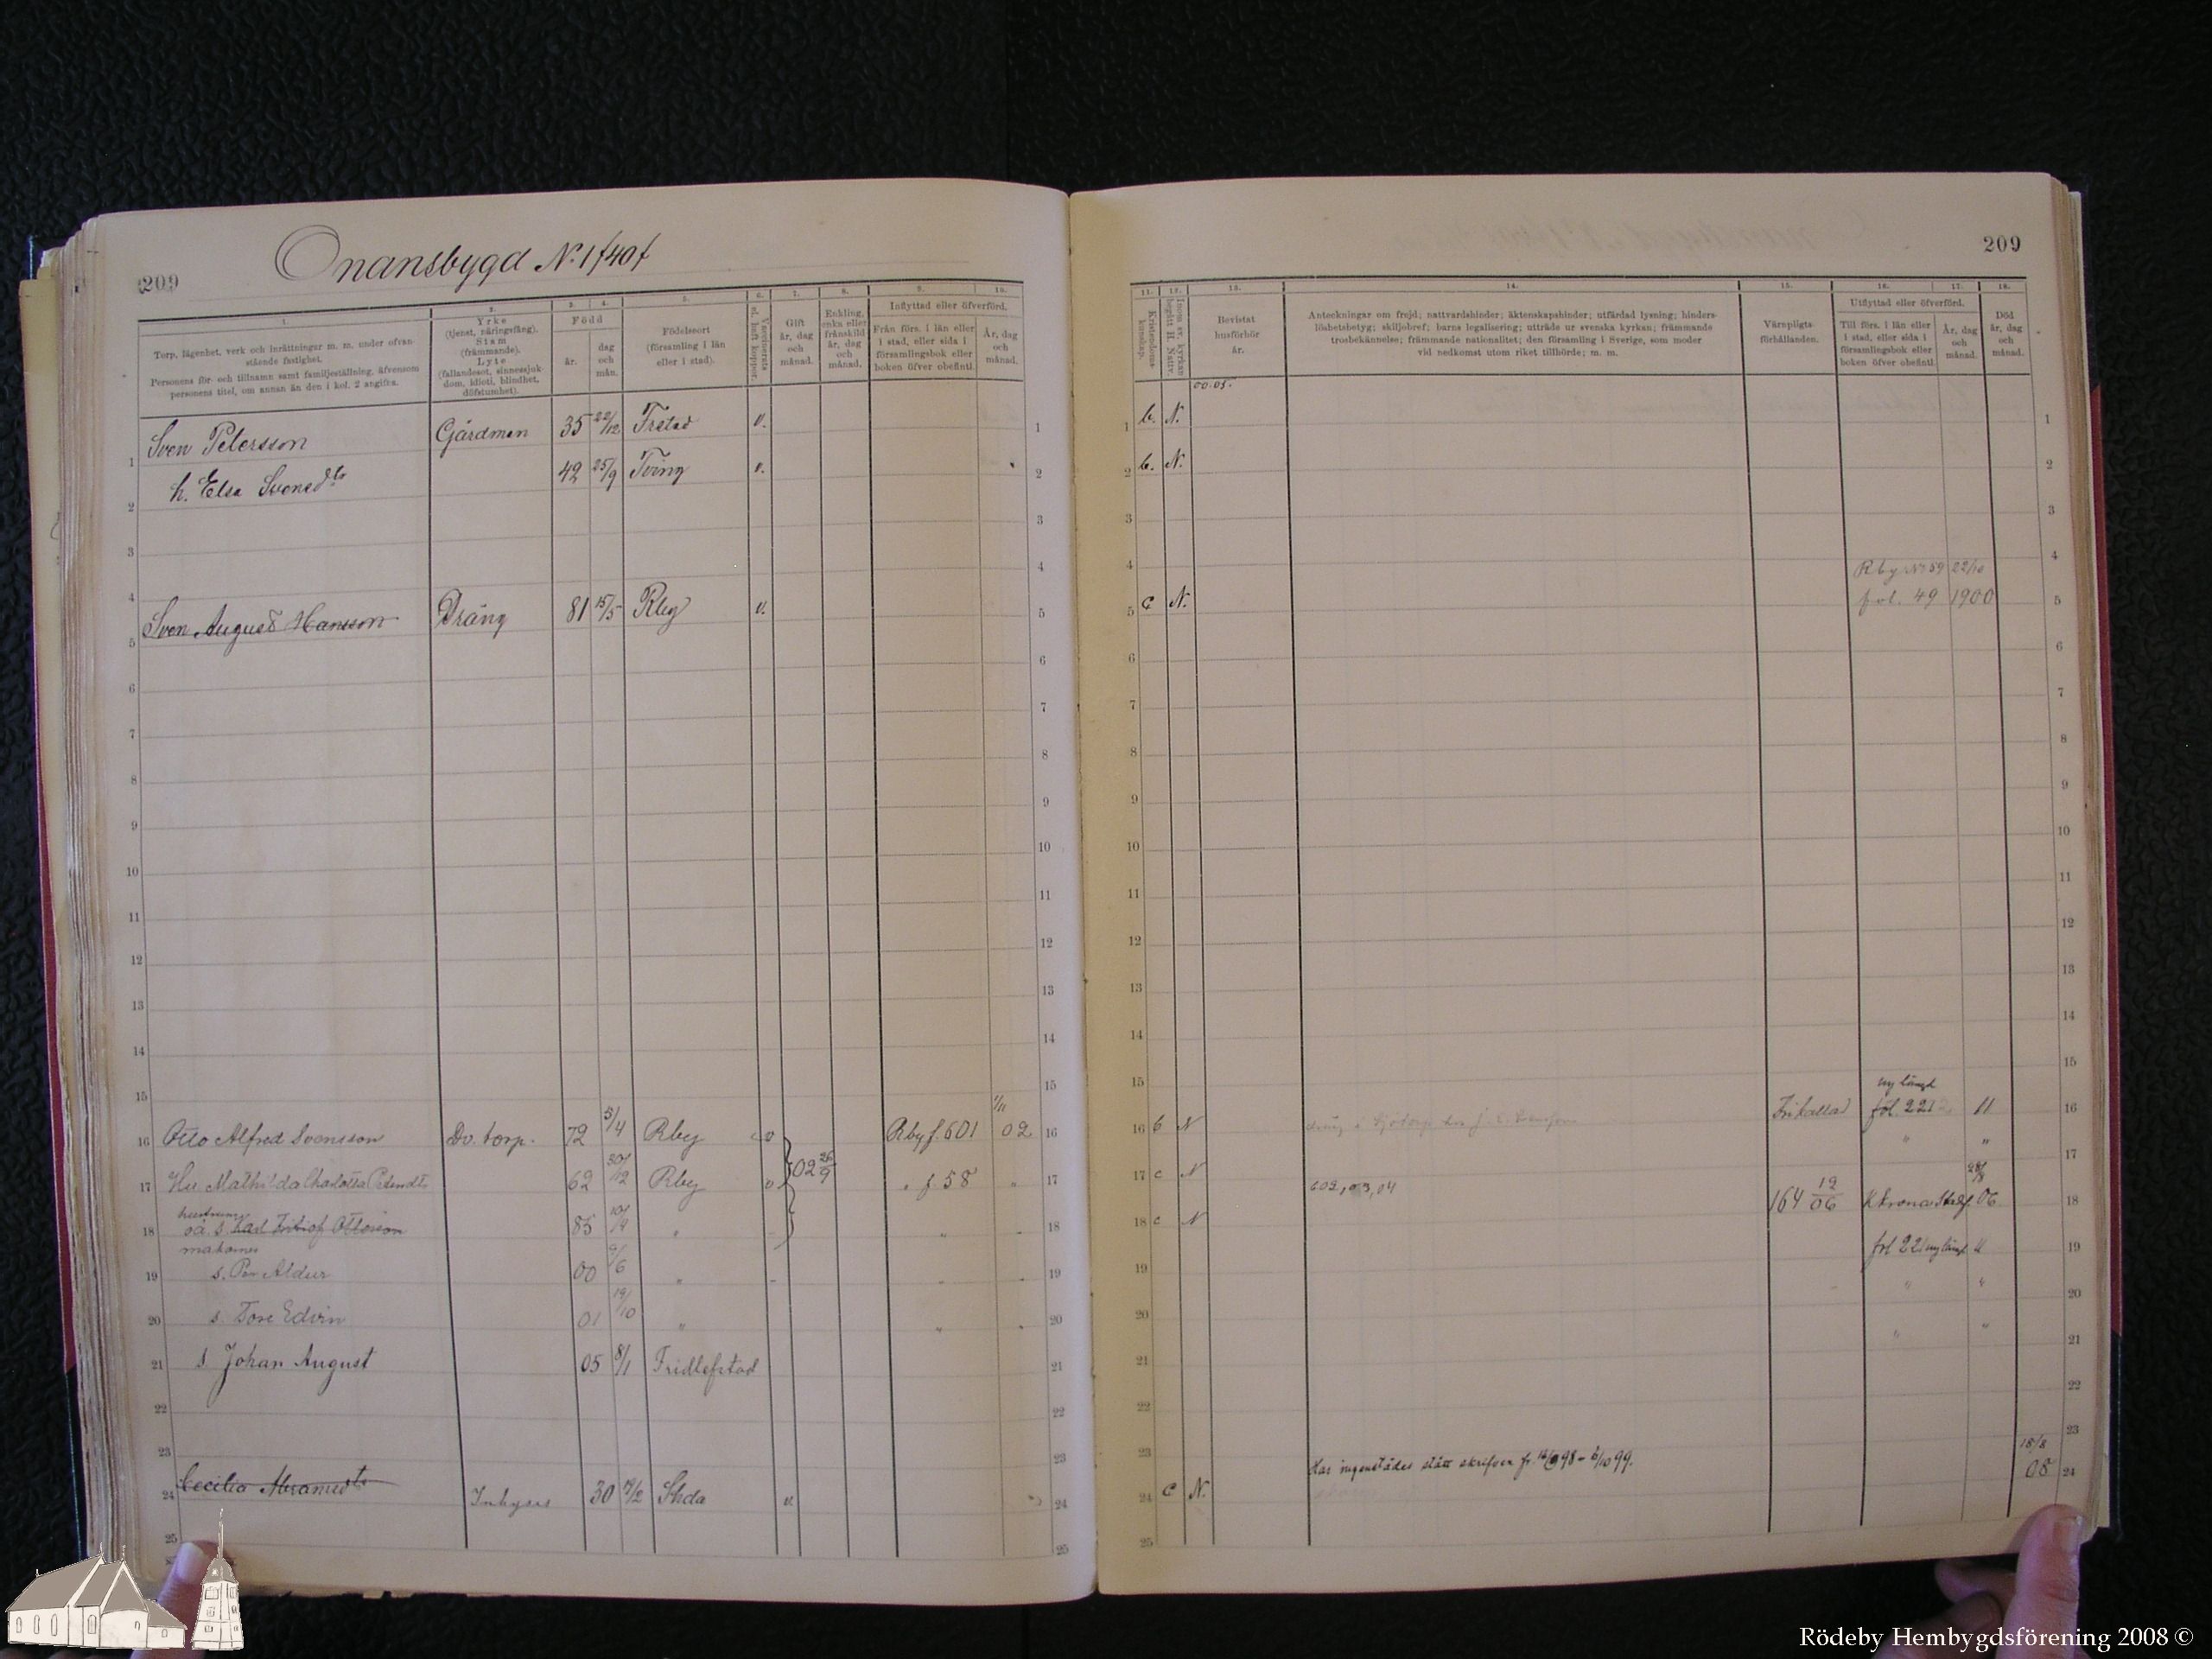 209
Onansbygd N:1 f40f
1.
Torp, lägenhet, verk och inrättningar m. m. under ofvan-
stående fastighet.
Personens för- och tillnamn samt familjeställning, äfvensom
personens titel, om annan än den i kol. 2 angifva.
2.
Yrke
(tjenst, näringsfång).
Stam
(främmande).
Lyte
(fallandesot, sinnessjuk-
dom, idioti, blindhet,
döfstumhet).
3. 4.
Född
år.
dag
och
mån.
5.
Födelseort
(församling i län
eller i stad).
6.
Vaccinerats
el. haft koppor.
7.
Gift
år, dag
och
månad.
8.
Enkling,
enka eller
frånskild
år, dag
och
månad.
9. 10.
Inflyttad eller öfverförd.
Från förs. i län eller
i stad, eller sida i
församlingsbok eller
boken öfver obefintl.
År, dag
och
månad.
1 Sven Petersson Gårdman 35 22/12 Frstad v. 1
2 h. Elsa Svensdtr 42 25/9 Tving v. 2
3 3
4 4
5 Sven August Hansson Dräng 81 15/5 Rby v. 5
6 6
7 7
8 8
9 9
10 10
11 11
12 12
13 13
14 14
15 15
16 Otto Alfred Svensson Dv. torp. 72 5/4 Rby v Rby f. 601 1/11 02 16
17 Hu Mathilda Charlotta Petersdtr 62 30/12 Rby v 02 26/9 " f 58 " 17
hustruns
18 oä s. Karl Fritiof Ottosson 85 10/9 " " " 18
makarnes
19 s. Per Aldur 00 9/6 " " " 19
20 s. Tore Edvin 01 19/10 " " " 20
21 s Johan August 05 8/1 Fridlefstad 21
22 22
23 23
24 Cecilia Abramsdtr Inhyses 30 19/2 Skda v. 24
25 25
209
11.
Kristendoms-
kunskap.
12.
Inom sv. kyrkan
begått H. Nattv.
13.
Bevistat
husförhör
år.
14.
Anteckningar om frejd; nattvardshinder; äktenskapshinder; utfärdad lysning; hinders-
löshetsbetyg; skiljobref; barns legalisering; utträde ur svenska kyrkan; främmande
trosbekännelse; främmande nationalitet; den församling i Sverige, som moder
vid nedkomst utom riket tillhörde; m. m.
15.
Värnpligts-
förhållanden.
16. 17.
Utflyttad eller öfverförd.
Till förs. i län eller
i stad, eller sida i
församlingsbok eller
boken öfver obefintl.
År, dag
och
månad.
18.
Död
år, dag
och
månad.
00.05.
1 b. N. 1
2 b. N. 2
3 3
4 Rby N:o 59 22/10 4
5 c N. fol. 49 1900 5
6 6
7 7
8 8
9 9
10 10
11 11
12 12
13 13
14 14
15 15
ny längd
16 b N Frikallad fol 221 11 16
17 c N " " 17
602, 03, 04
18 c N 164 19/06 Kkrona Stadsf. 28/8 06 18
19 fol 221 ny längd 11 19
20 " " 20
21 " " 21
22 22
23 23
24 c N. Har ingenstädes stått skrifven fr. 98 - 6/10 99. 18/8 08 24
25
Rödeby Hembygdsförening 2008 ©